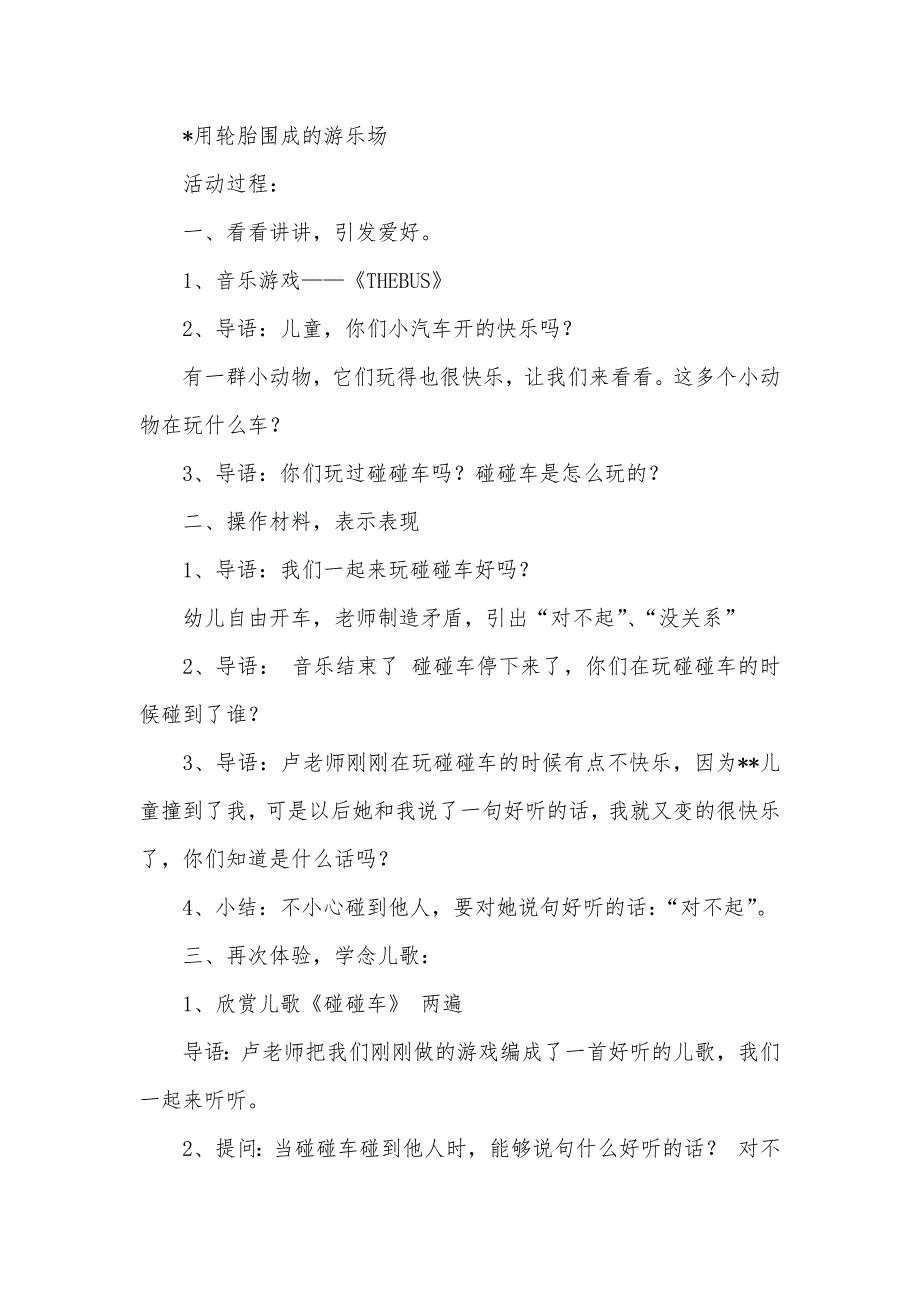 *用轮胎围成的游乐场
活动过程：
一、看看讲讲，引发爱好。
1、音乐游戏——《THEBUS》
2、导语：儿童，你们小汽车开的快乐吗？
有一群小动物，它们玩得也很快乐，让我们来看看。这多个小动
物在玩什么车？
3、导语：你们玩过碰碰车吗？碰碰车是怎么玩的？
二、操作材料，表示表现
1、导语：我们一起来玩碰碰车好吗？
幼儿自由开车，老师制造矛盾，引出“对不起”、“没关系”
2、导语： 音乐结束了 碰碰车停下来了，你们在玩碰碰车的时
候碰到了谁？
3、导语：卢老师刚刚在玩碰碰车的时候有点不快乐，因为**儿
童撞到了我，可是以后她和我说了一句好听的话，我就又变的很快乐
了，你们知道是什么话吗？
4、小结：不小心碰到他人，要对她说句好听的话：“对不起”。
三、再次体验，学念儿歌：
1、欣赏儿歌《碰碰车》 两遍
导语：卢老师把我们刚刚做的游戏编成了一首好听的儿歌，我们
一起来听听。
2、提问：当碰碰车碰到他人时，能够说句什么好听的话？ 对不